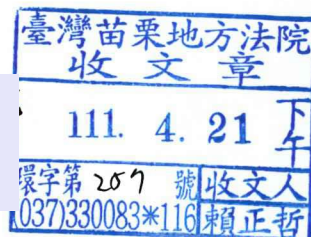 臺灣苗栗地方法院
收文章
111. 4. 21 下午
環字第 207 號 收文人
(037)330083*116 賴正哲